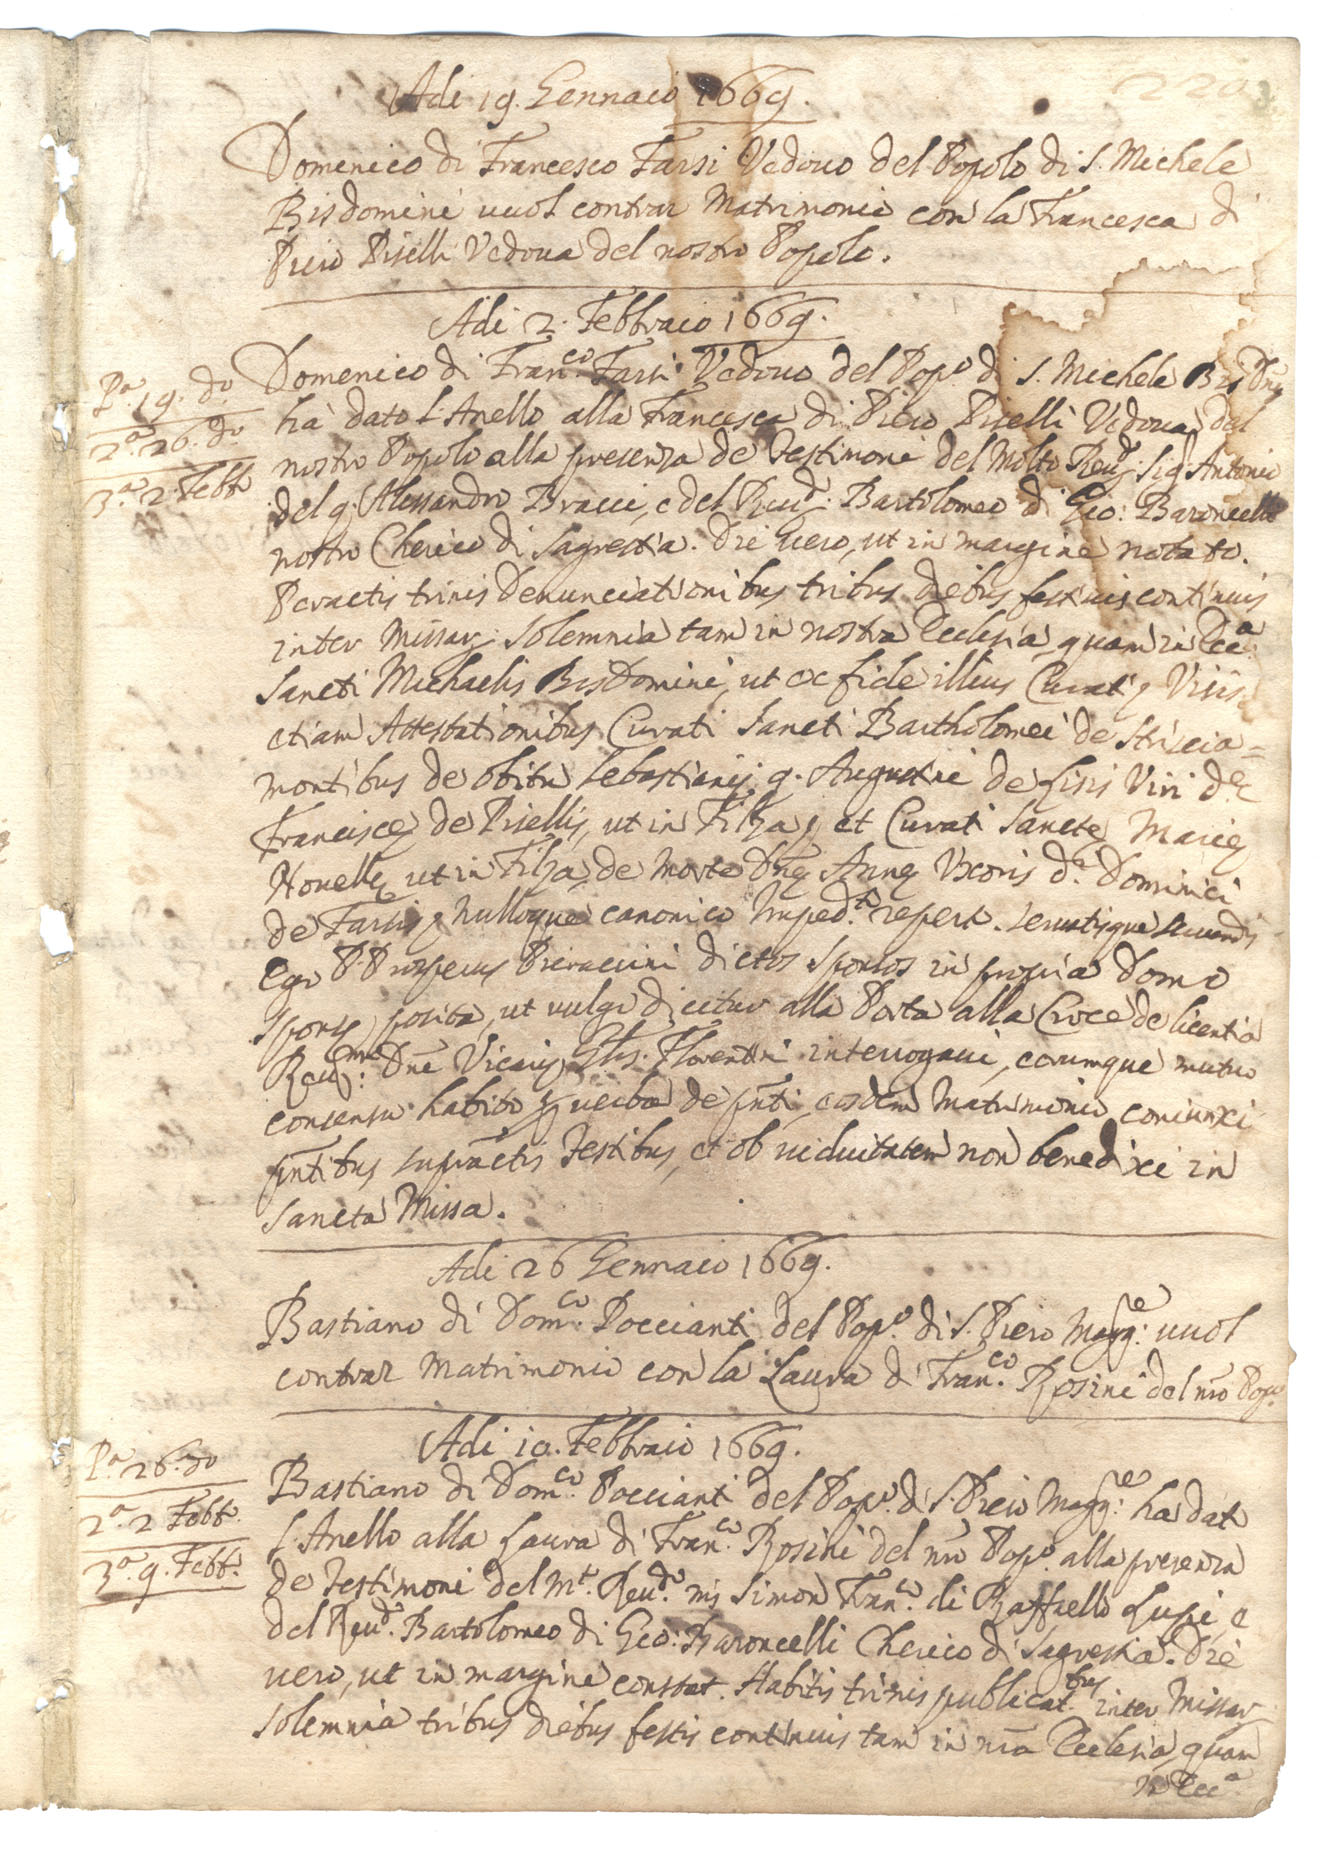 220
Adi 19. Gennaio 1669.
Domenico di Francesco Farsi Vedouo del Popolo di S. Michele
Bisdomini uuol contrar Matrimonio con la Francesca di
Piero Piselli Vedoua del nostro Popolo.
Adi 2. Febbraio 1669.
Domenico di Fran.co Farsi Vedouo del Pop.o di S. Michele Bisd.ni
P.a 19. do
ha dato l'Anello alla Francesca di Piero Piselli Vedoua del
2.a 26. do
nostro Popolo alla presenza de Testimoni del Molto Reu. Sig. Antonio
3.a 2. Febb.
del q. Alessandro Bracci, e del Reu.d Bartolomeo di Gio: Baroncelli
nostro Cherico di Sagrestia. Die uero, ut in margine notato.
Peractis trinis Denunciationibus tribus diebus festiuis continuis
inter Missar. Solemnia tam in nostra Ecclesia quam in Ecc.a
Sancti Michaelis Bisdomini, ut ex fide illius Curati, Visis
etiam Attestationibus Curati Sancti Bartholomei de Striscia=
montibus de obitu Sebastiani q. Augustini de Lisis Viri d.e
Franciscę de Pisellis, ut in Filza, et Curati Sanctę Marię
Nouellę ut in Filza, de Morte Dnę Annę Vxoris d. Dominici
de Farsis, Nulloque canonico Imped.to repert. seruatisque seruandis
Ego P. Prosperus Pieraccini dictos sponsos in propria Domo
Sponsę posita, ut uulgo dicitur alla Porta alla Croce de licentia
Reu.mi Dni Vicarij Glis. Florentini interrogaui, eorumque mutuo
consensu habito p uerba de pnti, eosdem Matrimonio coniunxi
pntibus supractis Testibus, et ob uiduitatem non benedixi in
Sancta Missa.
Adi 26 Gennaio 1669.
Bastiano di Dom.co Poccianti del Pop.o di S. Piero Magg.re uuol
contrar Matrimonio con la Laura di Fran.co Rosini del nro Pop.o
Adi 10. Febbraio 1669.
P.a 26. do
Bastiano di Dom.co Poccianti del Pop.o di S. Piero Magg.re ha dat
2.a 2 Febb.
l'Anello alla Laura di Fran.co Rosini del nro Pop.o alla presenza
3.a 9. Febb.
de Testimoni del M.to Reu.do ms Simon Fran.co di Raffaello Lupi, e
del Reu.d Bartolomeo di Gio: Baroncelli Cherico di Sagrestia. Die
uero, ut in margine constat. Habitis trinis publicat.bus inter Missar.
Solemnia tribus diebus festis continuis tam in nra Ecclesia, quam
in Ecc.a